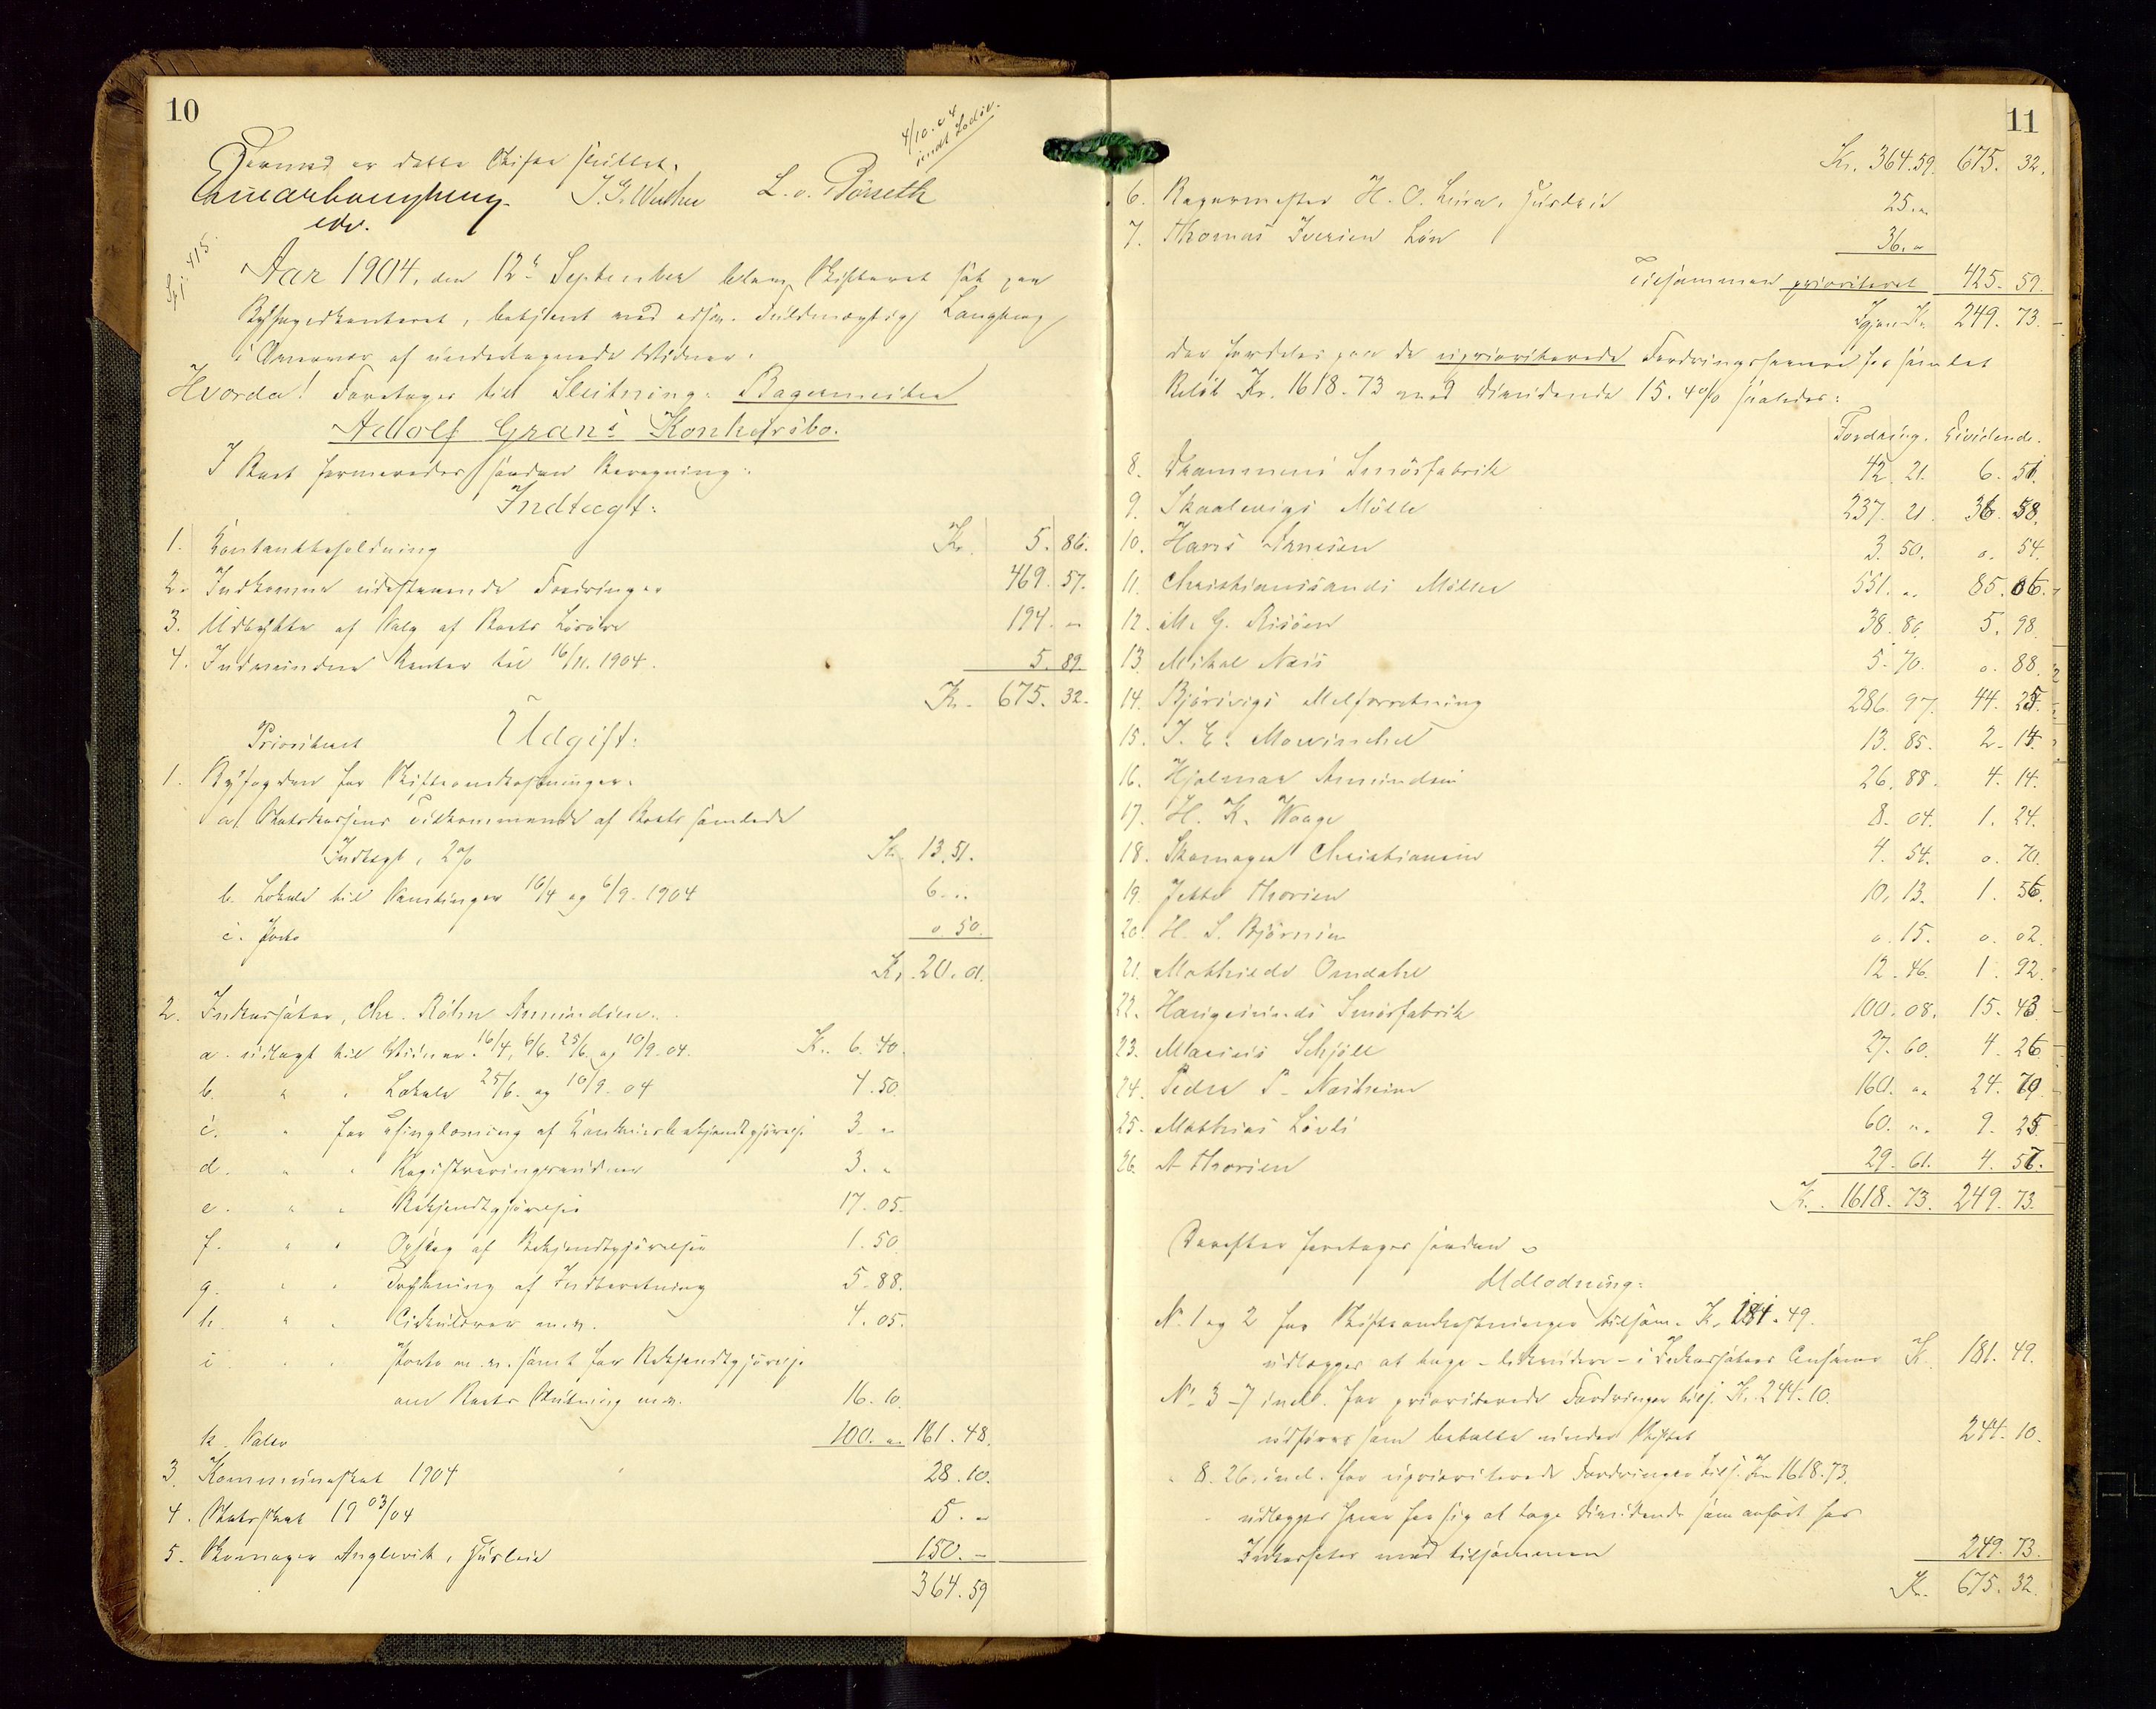 10
4/10. 04
indt. Lodsv.
Hermed er dette Skifte sluttet.
Einar Langberg. J. G. Wathne L. O. Börseth
edv.
Spj. 4/5
Aar 1904, den 12te September blev Skifteret sat paa
Byfogedkontoret, betjent med edsv. Fuldmægtig Langberg
i Overvær af undertegnede Vidner.
Hvorda! Foretoges til Slutning: Bagermester
Adolf Grans Konkursbo.
I Boet formeredes saadan Beregning:
Indtægt:
1. Kontantbeholdning Kr. 5. 86.
2. Indkomne udestaaende Fordringer 469. 57.
3. Udbytte af Salg af Boets Lösöre 194. "
4. Indvundne Renter til 16/11. 1904. 5. 89.
Kr. 675. 32.
Udgift:
Prioriteret
1. Byfogden for Skifteomkostninger.
a. Statskassens Tilkommende af Boets samlede
Indtægt, 2% Kr. 13. 51.
b. Lokale til Samlinger 16/4 og 6/9. 1904 6. "
c. Porto 0. 50.
Kr. 20. 01.
2. Inkassator, Chr. Röhn Amundsen.
a. udlagt til Vidner 16/4, 6/6. 25/6. og 10/9. 04. Kr. 6. 40.
b. " " Lokale 25/6. og 10/9. 04 4. 50.
c. " for Thinglæsning af Konkursbekjendtgjörelse 3. "
d. " " Registreringsvidner 3. "
e. " " Bekjendtgjörelse 17. 05.
f. " " Opslag af Bekjendtgjörelser 1. 50.
g. " " Trykning af Indberetning 5. 88.
h. " " Cirkulærer m.v. 4. 05.
i " " Porto m.v. samt for Bekjendtgjörelse
om Boets Slutning m.v. 16. 10.
k. Salær 100. " 161. 48.
3. Kommuneskat 1904 28. 10.
4. Statsskat 1903/04 5. "
5. Skomager Anglevik, Husleie 150. "
364. 59
11
Kr. 364. 59. 675. 32.
6. Bagermester H. O. Lura, Husleie 25. "
7. Thomas Iversen Lön 36. "
Tilsammen prioriteret 425. 59.
Igjen Kr. 249. 73.
der fordeles paa de uprioriterede Fordringshavere for samlet
Belöb Kr. 1618. 73 med Dividende 15. 4% saaledes:
Fordring. Dividende.
8. Drammens Smörfabrik 42. 21. 6. 51.
9. Skaalevigs Mölle 237. 21. 36. 58.
10. Hans Arnesen 3. 50. 0. 54.
11. Christianssands Möller 551. " 85. 06.
12. M. G. Risöen 38. 86. 5. 98.
13. Mikal Næss 5. 70. 0. 88.
14. Björsvigs Melforretning 286. 97. 44. 25.
15. J. E. Mowinckel 13. 85. 2. 14.
16. Hjalmar Amundsen 26. 88. 4. 14.
17. H. K. Waage 8. 04. 1. 24.
18. Skomager Christiansen 4. 54. 0. 70.
19. Jette Thorsen 10. 13. 1. 56.
20. H. S. Björnsen 0. 15. 0. 02.
21. Mathilde Omdahl 12. 46. 1. 92.
22. Haugesunds Smörfabrik 100. 08. 15. 43.
23. Marius Schjöll 27. 60. 4. 26.
24. Peder P. Nærheim 160. " 24. 70.
25. Mathias Lövli 60. " 9. 25.
26. A Thorsen 29. 61. 4. 57.
Kr. 1618. 73. 249. 73.
Derefter foretoges saadan
Udlodning:
No. 1 og 2 for Skifteomkostninger tilsam. Kr. 181. 49.
udlægges at tage - likvidere - i Inkassators Ansvar Kr. 181. 49.
No. 3-7 incl. for prioriterede Fordringer tils. Kr. 244. 10.
udföres som betalte under Skiftet 244. 10.
" 8. 26. incl. for uprioriterede Fordringer tils. Kr. 1618. 73.
udlægges hver for sig at tage Dividende som anfört hos
Inkassator med tilsammen 249. 73.
Kr. 675. 32.